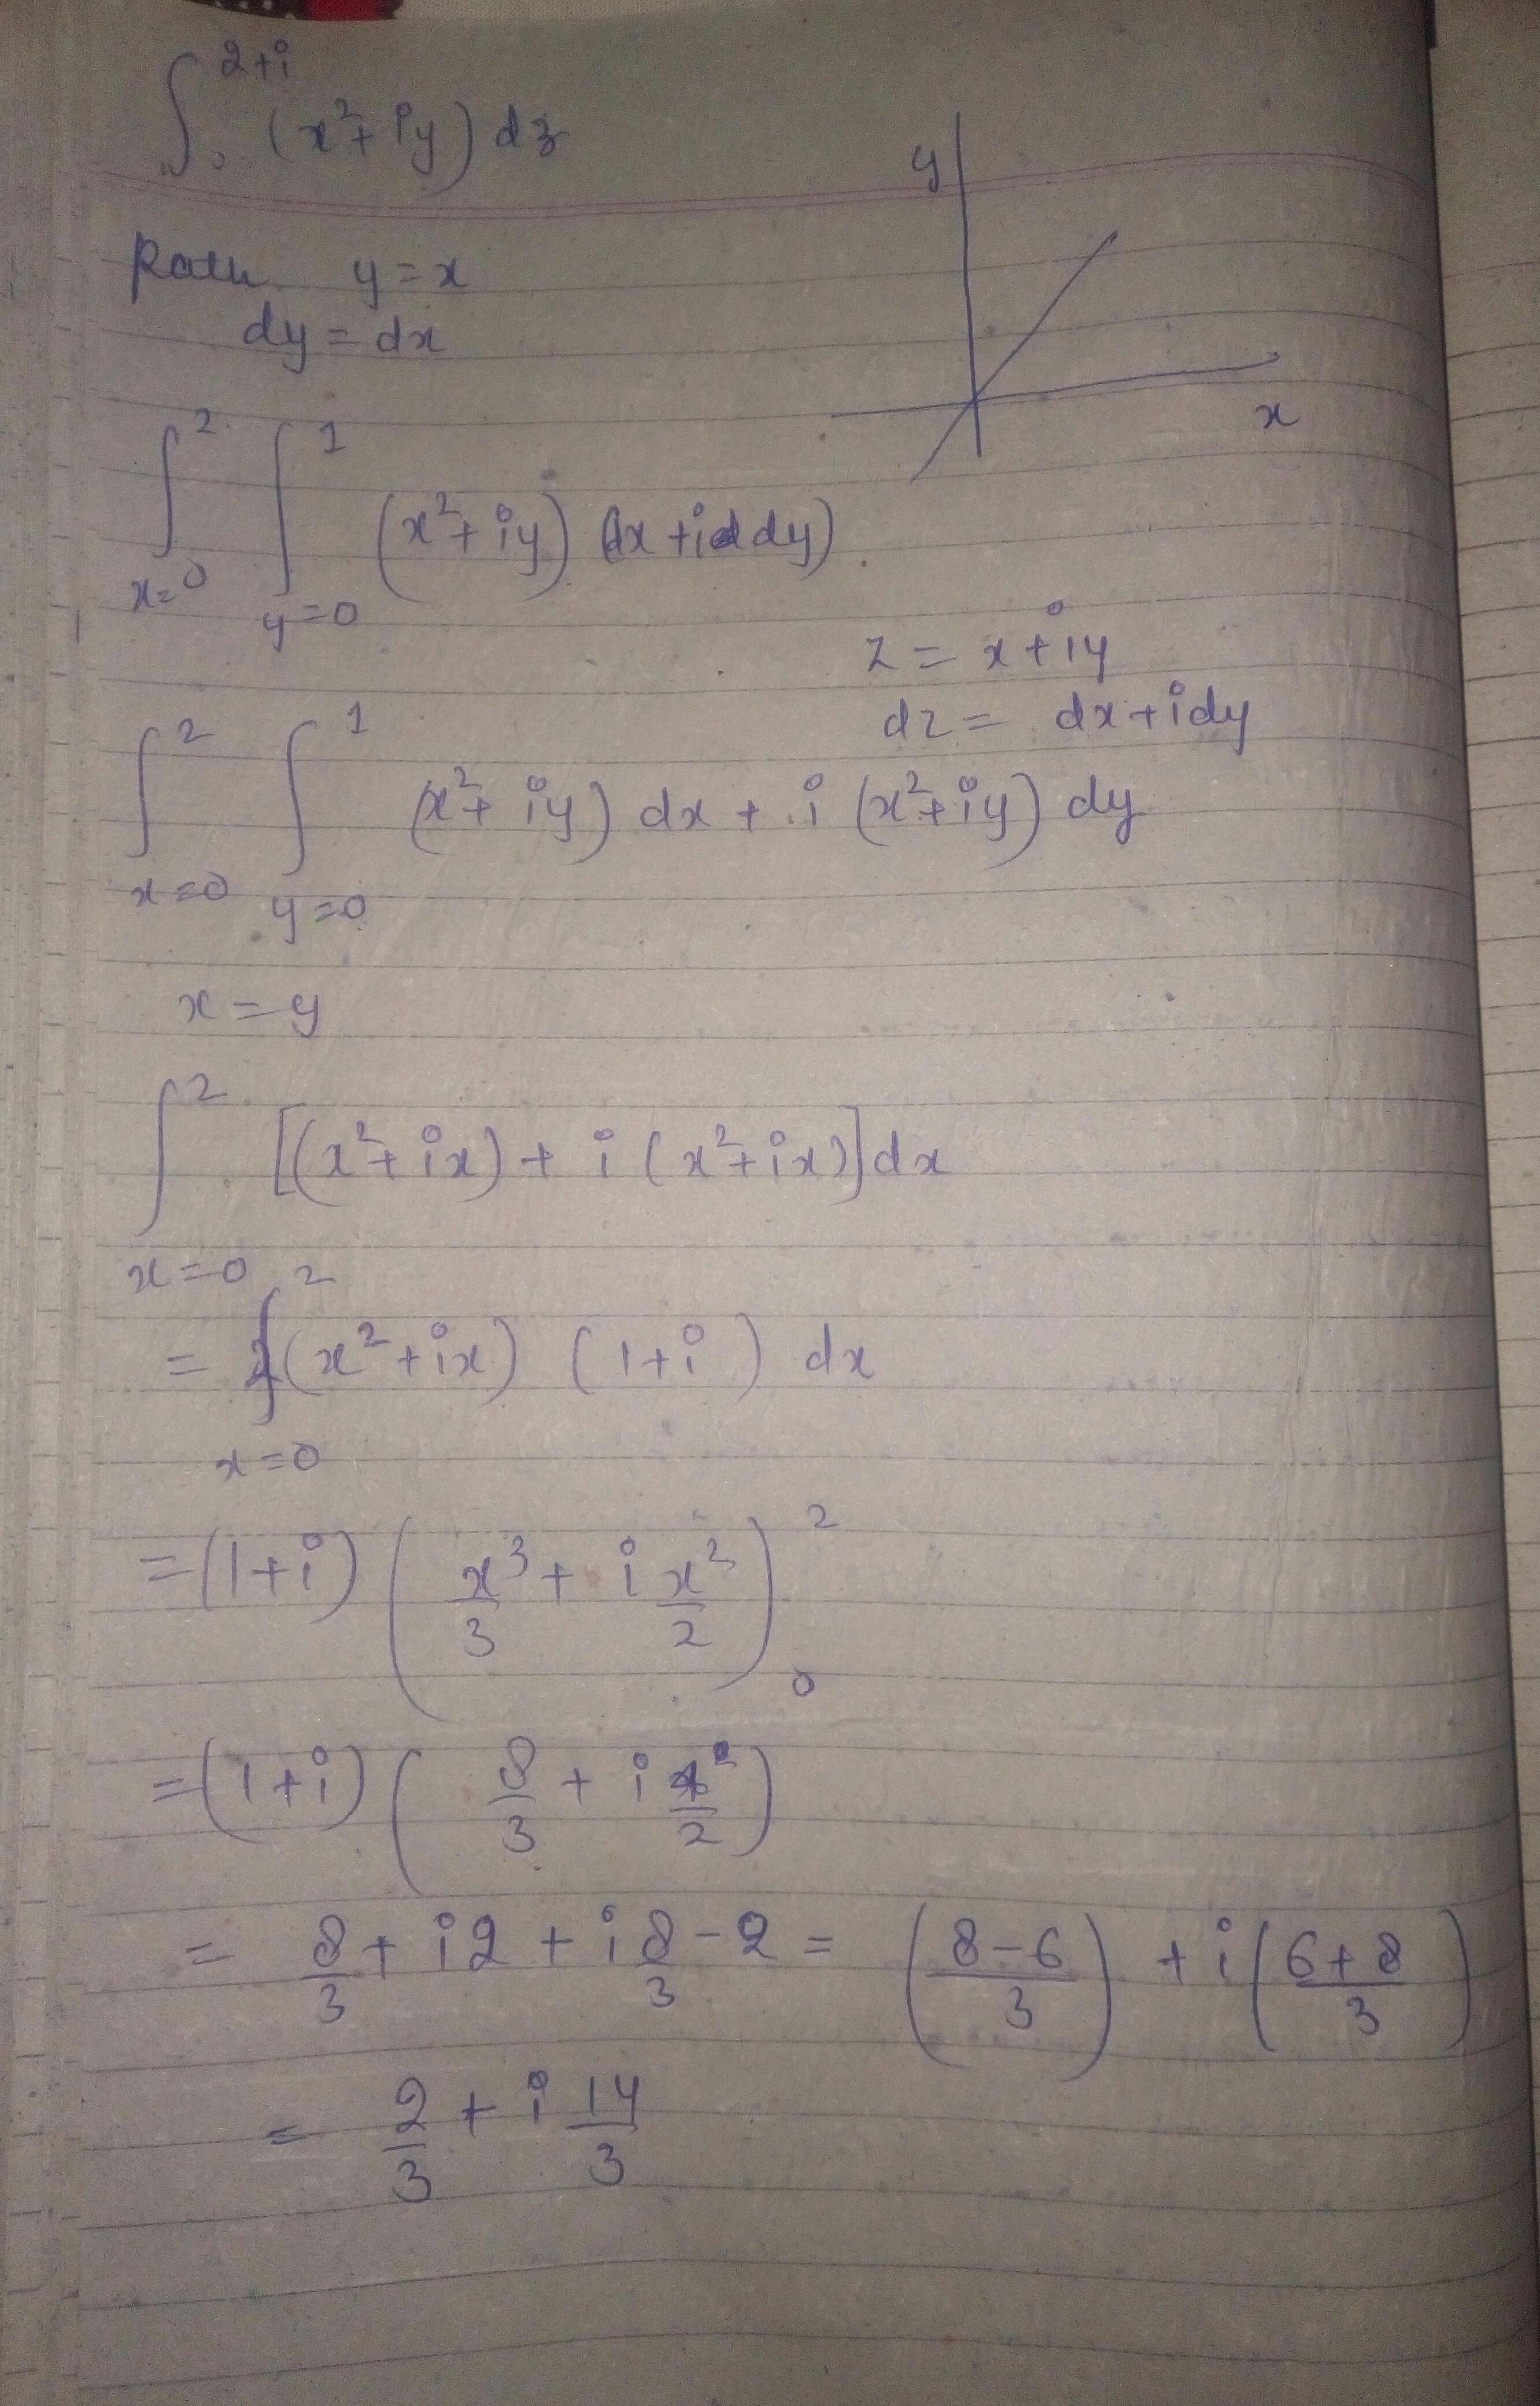 ∫₀^{2+i} (x²+iy) dz
Path y=x
dy = dx
y
x
∫_{x=0}^{2} ∫_{y=0}^{1} (x²+iy) (dx+i dy)
z = x+iy
dz = dx+idy
∫_{x=0}^{2} ∫_{y=0}^{1} (x²+iy) dx + i (x²+iy) dy
x=y
∫_{x=0}^{2} [(x²+ix)+ i (x²+ix)]dx
= ∫_{x=0}^{2} (x²+ix) (1+i) dx
=(1+i) (x³/3 + i x²/2)₀²
=(1+i) (8/3 + i 4/2)
= 8/3 + i2 + i 8/3 - 2 = ((8-6)/3) + i((6+8)/3)
= 2/3 + i 14/3